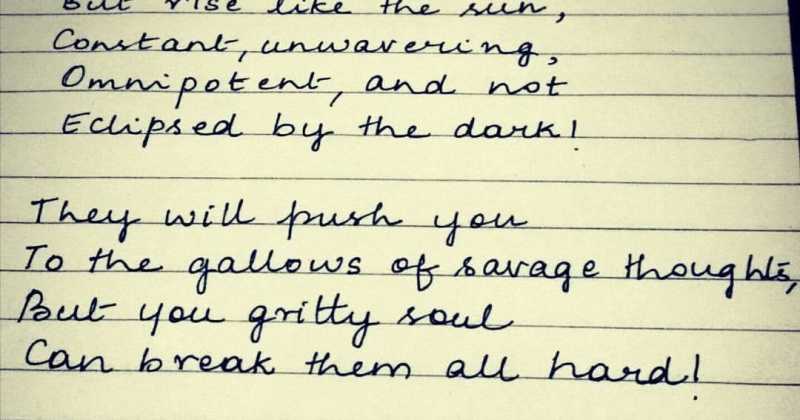 But rise like the sun,
Constant, unwavering,
Omnipotent, and not
Eclipsed by the dark!
They will push you
To the gallows of savage thoughts,
But you gritty soul
Can break them all hard!